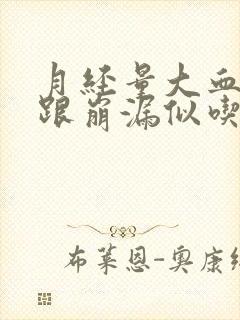 月经量大血
跟崩漏似喫
布莱恩-奥康纳